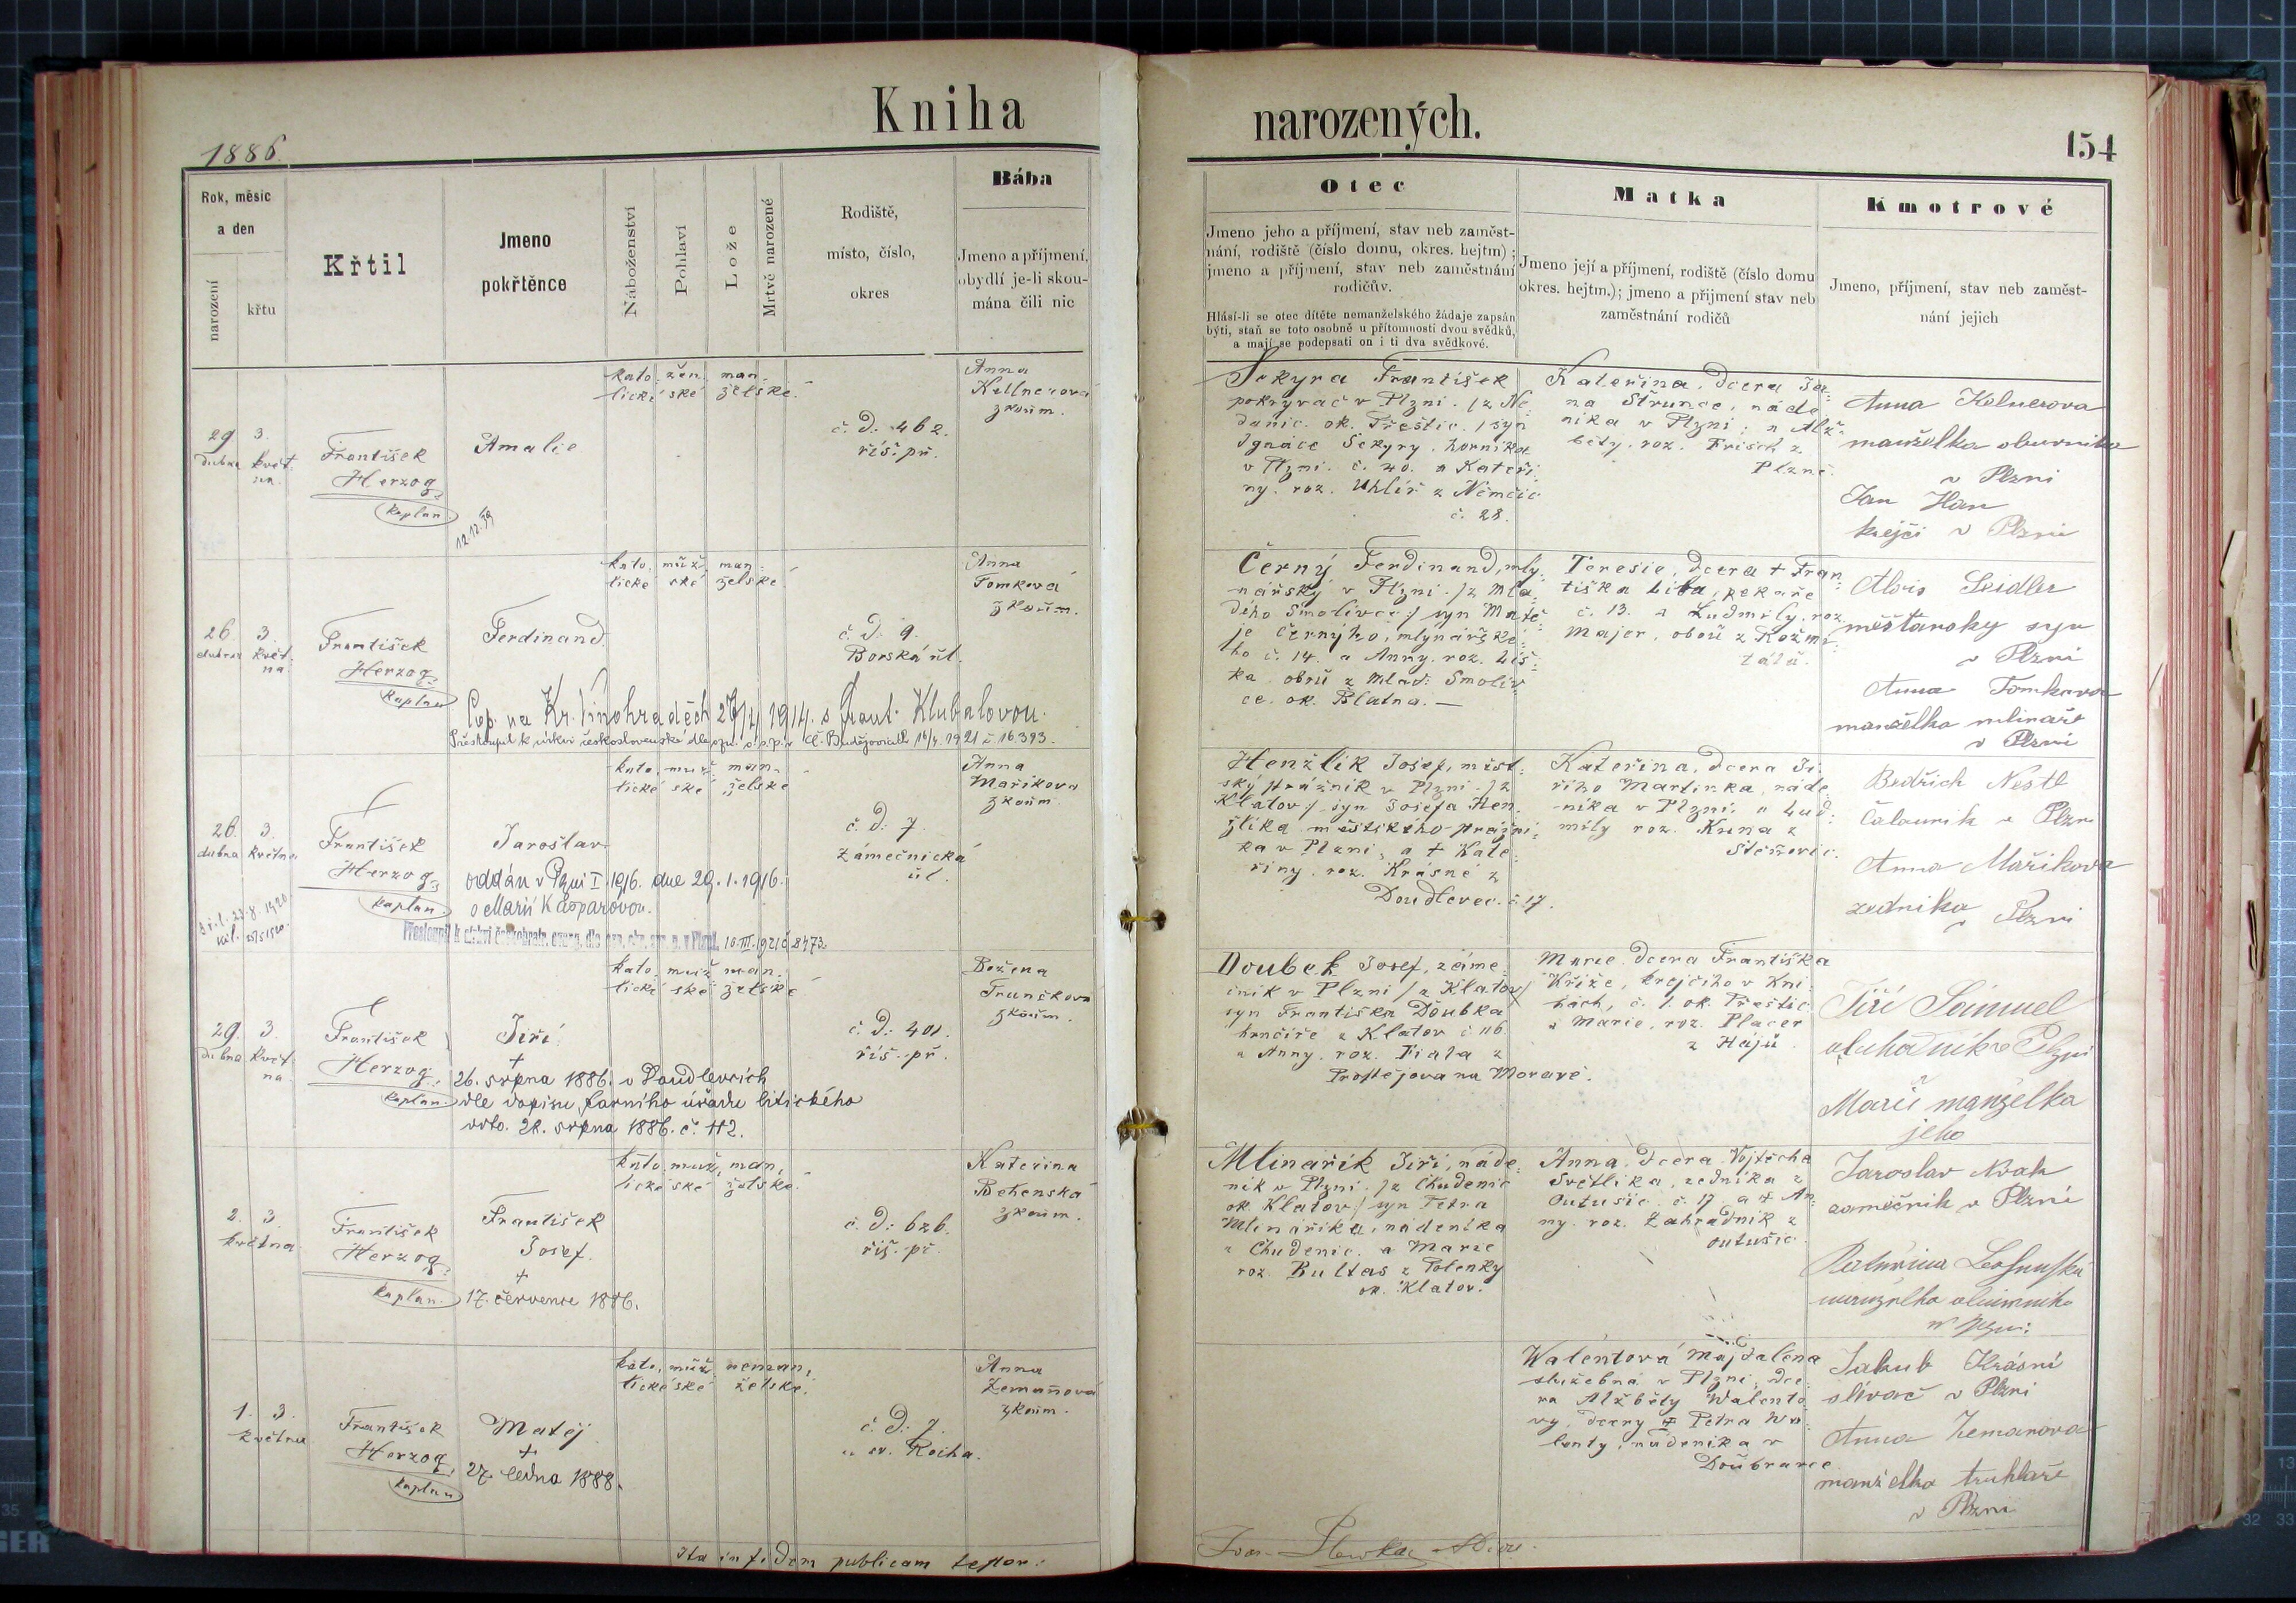 Kniha
narozených.
1886.
154
Rok, měsíc
a den
narození
křtu
Křtil
Jmeno
pokřtěnce
Náboženství
Pohlaví
Lože
Mrtvě narozené
Rodiště,
místo, číslo,
okres
Bába
Jmeno a příjmení,
obydlí je-li skou-
mána čili nic
Otec
Jmeno jeho a příjmení, stav neb zaměst-
nání, rodiště (číslo domu, okres. hejtm) ;
jmeno a příjmení, stav neb zaměstnání
rodičův.
Hlásí-li se otec dítěte nemanželského žádaje zapsán
býti, staň se toto osobně u přítomnosti dvou svědků,
a mají se podepsati on i ti dva svědkové.
Matka
Jmeno její a příjmení, rodiště (číslo domu
okres. hejtm.); jmeno a příjmení stav neb
zaměstnání rodičů
Kmotrové
Jmeno, příjmení, stav neb zaměst-
nání jejich
29 3.
dubna květ
na.
František
Herzog
kaplan
Amalie
12.12.39
kato. žen. man.
lické ské želské
č. d. 462.
říš. př.
Anna
Kellnerová
zkoum.
Sekyra František
pokrývač v Plzni. /z Ne
danic. ok. Přeštic. / syn
Ignáce Sekyry. horníka
v Plzni. č. 40. a Kateři
ny. roz. Uhlíř z Němčic
č. 28.
Kateřina, dcera Ja
na Strunce, náde
níka v Plzni; a Alž
běty. roz. Frisch z
Plzně.
Anna Kolnerova
manželka obuvníka
v Plzni
Jan Han
krejčí v Plzni
26. 3.
dubna květ
na.
František
Herzog
kaplan
Ferdinand
kato. muž. man.
lické ské želské
č. d. 9.
Borská ul.
Anna
Tomková
zkoum.
Cop. na Kr. Vinohradech 27/4 1914. s Frant. Klubalovou.
Přestoupil k církvi československé dle ozn. o. s. p. v Č. Budějovicích 16/4. 1921 č. 16.393.
Černý Ferdinand, mly
nářský v Plzni. /z Mla
dého Smolivce:/ syn Matě
je Černýho, mlynářské
ho č. 14. a Anny. roz. Liš
ka. obou z Mlad. Smoliv
ce. ok. Blatna. —
Teresie, dcera + Fran
tiška Liba, pekaře
č. 13. a Ludmily, roz.
Majer, obou z Kožmi
tálů.
Alois Seidler
měšťanský syn
v Plzni
Anna Tomkova
manželka mlináře
v Plzni
26. 3.
dubna května
František
Herzog
kaplan.
Jaroslav
oddán v Plzni I. 1916. dne 29. 1. 1916.
s Marií Kašparovou.
Přestoupil k církvi českobratr. evang. dle 10. III. 1921 č. 8473.
kato. muž. man.
lické ské želské
č. d. 7
Zámečnická
ul.
Anna
Maříkova
zkoum.
Henžlík Josef, měst
ský strážník v Plzni. /z
Klatov:/ syn Josefa Hen
žlíka městského strážní
ka v Plzni, a + Kate
řiny. roz. Krásné z
Doudlevec. č. 17.
Kateřina, dcera Ji
řího Martínka, náde
níka v Plzni. a Lud
mily roz. Kuna z
Štěnovic.
Bedřich Nestl
Čalouník v Plzni
Anna Maříkova
zedníka
v Plzni
29. 3.
dubna květ
na
František
Herzog
kaplan.
Jiří
+
26. srpna 1886. v Doudlevcích
dle dopisu farního úřadu litického
ddto. 28. srpna 1886. č. 112.
kato. muž. man.
lické ské želské
č. d. 401.
říš. př.
Božena
Trunečková
zkoum.
Doubek Josef, záme
čník v Plzni / z Klatov/
syn Františka Doubka
hrnčíře z Klatov č. 116.
a Anny. roz. Fiala z
Prostějova na Moravě.
Marie dcera Františka
Kříže, krejčího v Kni
hách, č. 1. ok. Přeštic
a Marie, roz. Placer
z Hájů
Jiří Sámuel
v Plzni
Marie manželka
jeho
2. 3.
května
František
Herzog
kaplan.
František
Josef.
+
17. července 1886.
kato. muž. man.
lické ské želské.
č. d: 626.
říš. př.
Kateřina
Betenská
zkoum.
Mlinařík Jiří, náde
ník v Plzni. /z Chudenic
ok. Klatov/ syn Petra
Mlinaříka, nádeníka
z Chudenic. a Marie
roz. Bultas z Polenky
ok. Klatov.
Anna, dcera Vojtěcha
Světlíka, zedníka z
Outušic. č. 17. a + An
ny. roz. Zahradník z
Outušic
Jaroslav Novák
zámečník v Plzni
Kateřina
1. 3.
května
František
Herzog
kaplan
Matěj
+
27. ledna 1888.
kato. muž. neman.
lické ské želské.
č. d: 7.
u sv. Rocha.
Anna
Zemanová
zkoum.
Walentová Majdalena
služebná v Plzni, dce
ra Alžběty Walento
vy, dcery + Petra Wa
lenty, nádeníka v
Doubravce
Jakub Krásní
slívač v Plzni
Anna Zemanova
manželka truhláře
v Plzni
Ita in fidem publicam testor: